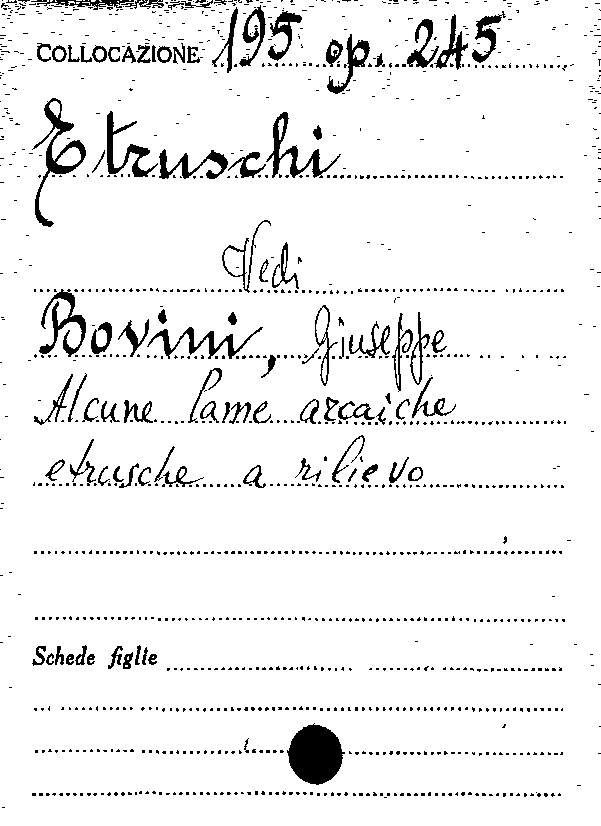 COLLOCAZIONE 195 op. 245
Etruschi
Vedi
Bovini, Giuseppe
Alcune lame arcaiche
etrusche a rilievo
Schede figlie